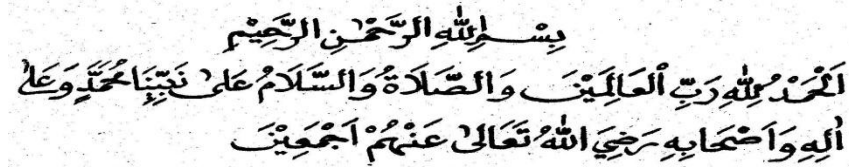 بِسْمِ اللهِ الرَّحْمٰنِ الرَّحِيْمِ
اَلْحَمْدُ لِلّٰهِ رَبِّ الْعَالَمِيْنَ وَالصَّلَاةُ وَالسَّلَامُ عَلٰى نَبِيِّنَا مُحَمَّدٍ وَعَلٰى
اٰلِهِ وَاَصْحَابِهِ رَضِيَ اللّٰهُ تَعَالٰى عَنْهُمْ اَجْمَعِيْنَ